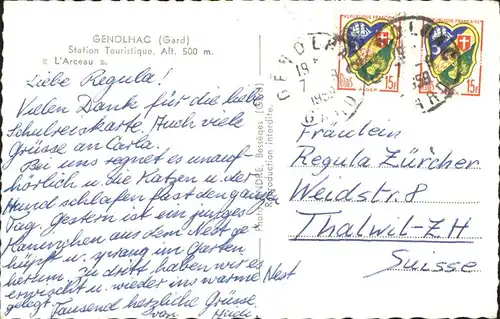 GENOLHAC (Gard)
Station Touristique. Alt. 500 m.
« L'Arceau ».
Liebe Regula!
Vielen Dank für die liebe
Schulreisekarte. Auch viele
Grüsse an Carla.
Bei uns regnet es unauf-
hörlich u. die Katzen u. der
Hund schlafen fast den ganzen
Tag. Gestern ist ein junges
Kaninchen aus dem Nest ge-
hüpft u. sprang im Garten
herum, zu dritt haben wir es
erwischt u. wieder ins warme Nest
gelegt. Tausend herzliche Grüsse
Photo ANDRÉ, Bessèges (Gard)
Reproduction interdite.
GENOLHAC
GARD
REPUBLIQUE FRANÇAISE
15F
ALGER
15F
Fräulein
Regula Zürcher
Weidstr. 8
Thalwil-ZH
Suisse